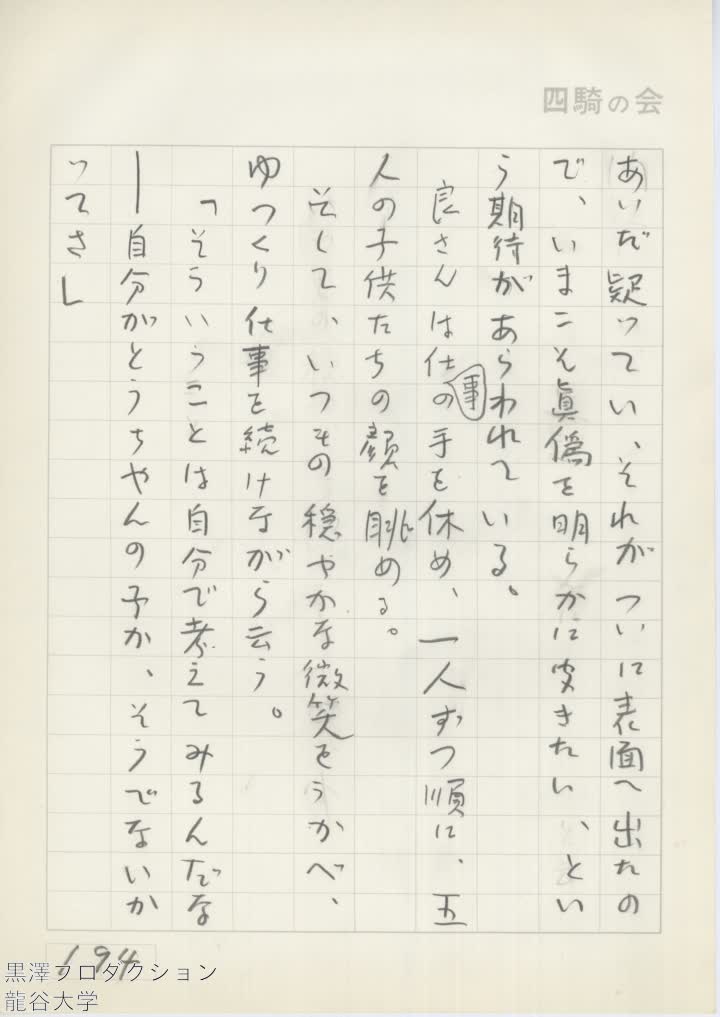 四騎の会
あいだ疑っていゝそれがついに表面へ出たの
で、いまこそ眞偽を明らかにききたい、とい
う期待があらわれている。
良さんは仕事の手を休め、一人ずつ順に、五
人の子供たちの顔を眺める。
そして、いつもの穏やかな微笑をうかべ、
ゆっくり仕事を続けながら云う。
「そういうことは自分で考えてみるんだな
―自分がとうちゃんの子か、そうでないか
ってさ」
194
黒澤プロダクション
龍谷大学